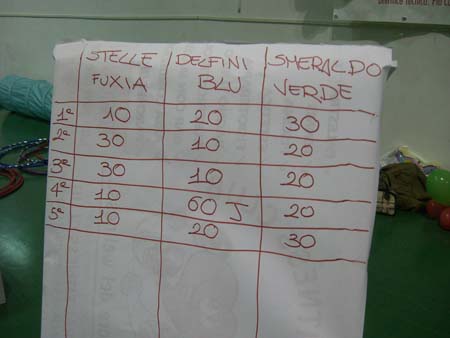 STELLE DELFINI SMERALDO
FUXIA BLU VERDE
1ª 10 20 30
2ª 30 10 20
3ª 30 10 20
4ª 10 60 J 20
5ª 10 20 30